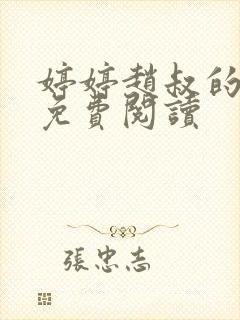 婷婷趙叔的
免費閱讀
張忠志